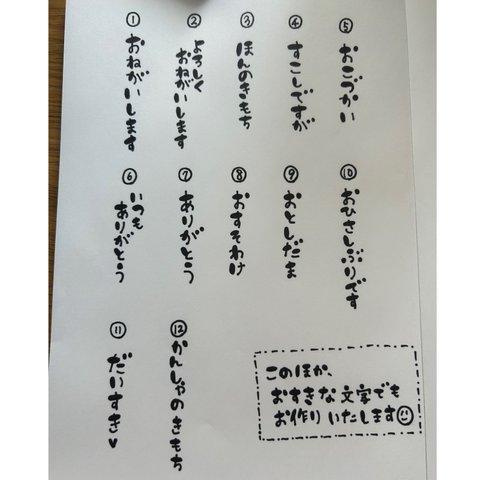 ① おねがいします
② よろしく
おねがいします
③ ほんのきもち
④ すこしですが
⑤ おこづかい
⑥ いつも
ありがとう
⑦ ありがとう
⑧ おすそわけ
⑨ おとしだま
⑩ おひさしぶりです
⑪ だいすき♥
⑫ かんしゃのきもち
このほか、
おすきな文字でも
お作りいたします☺